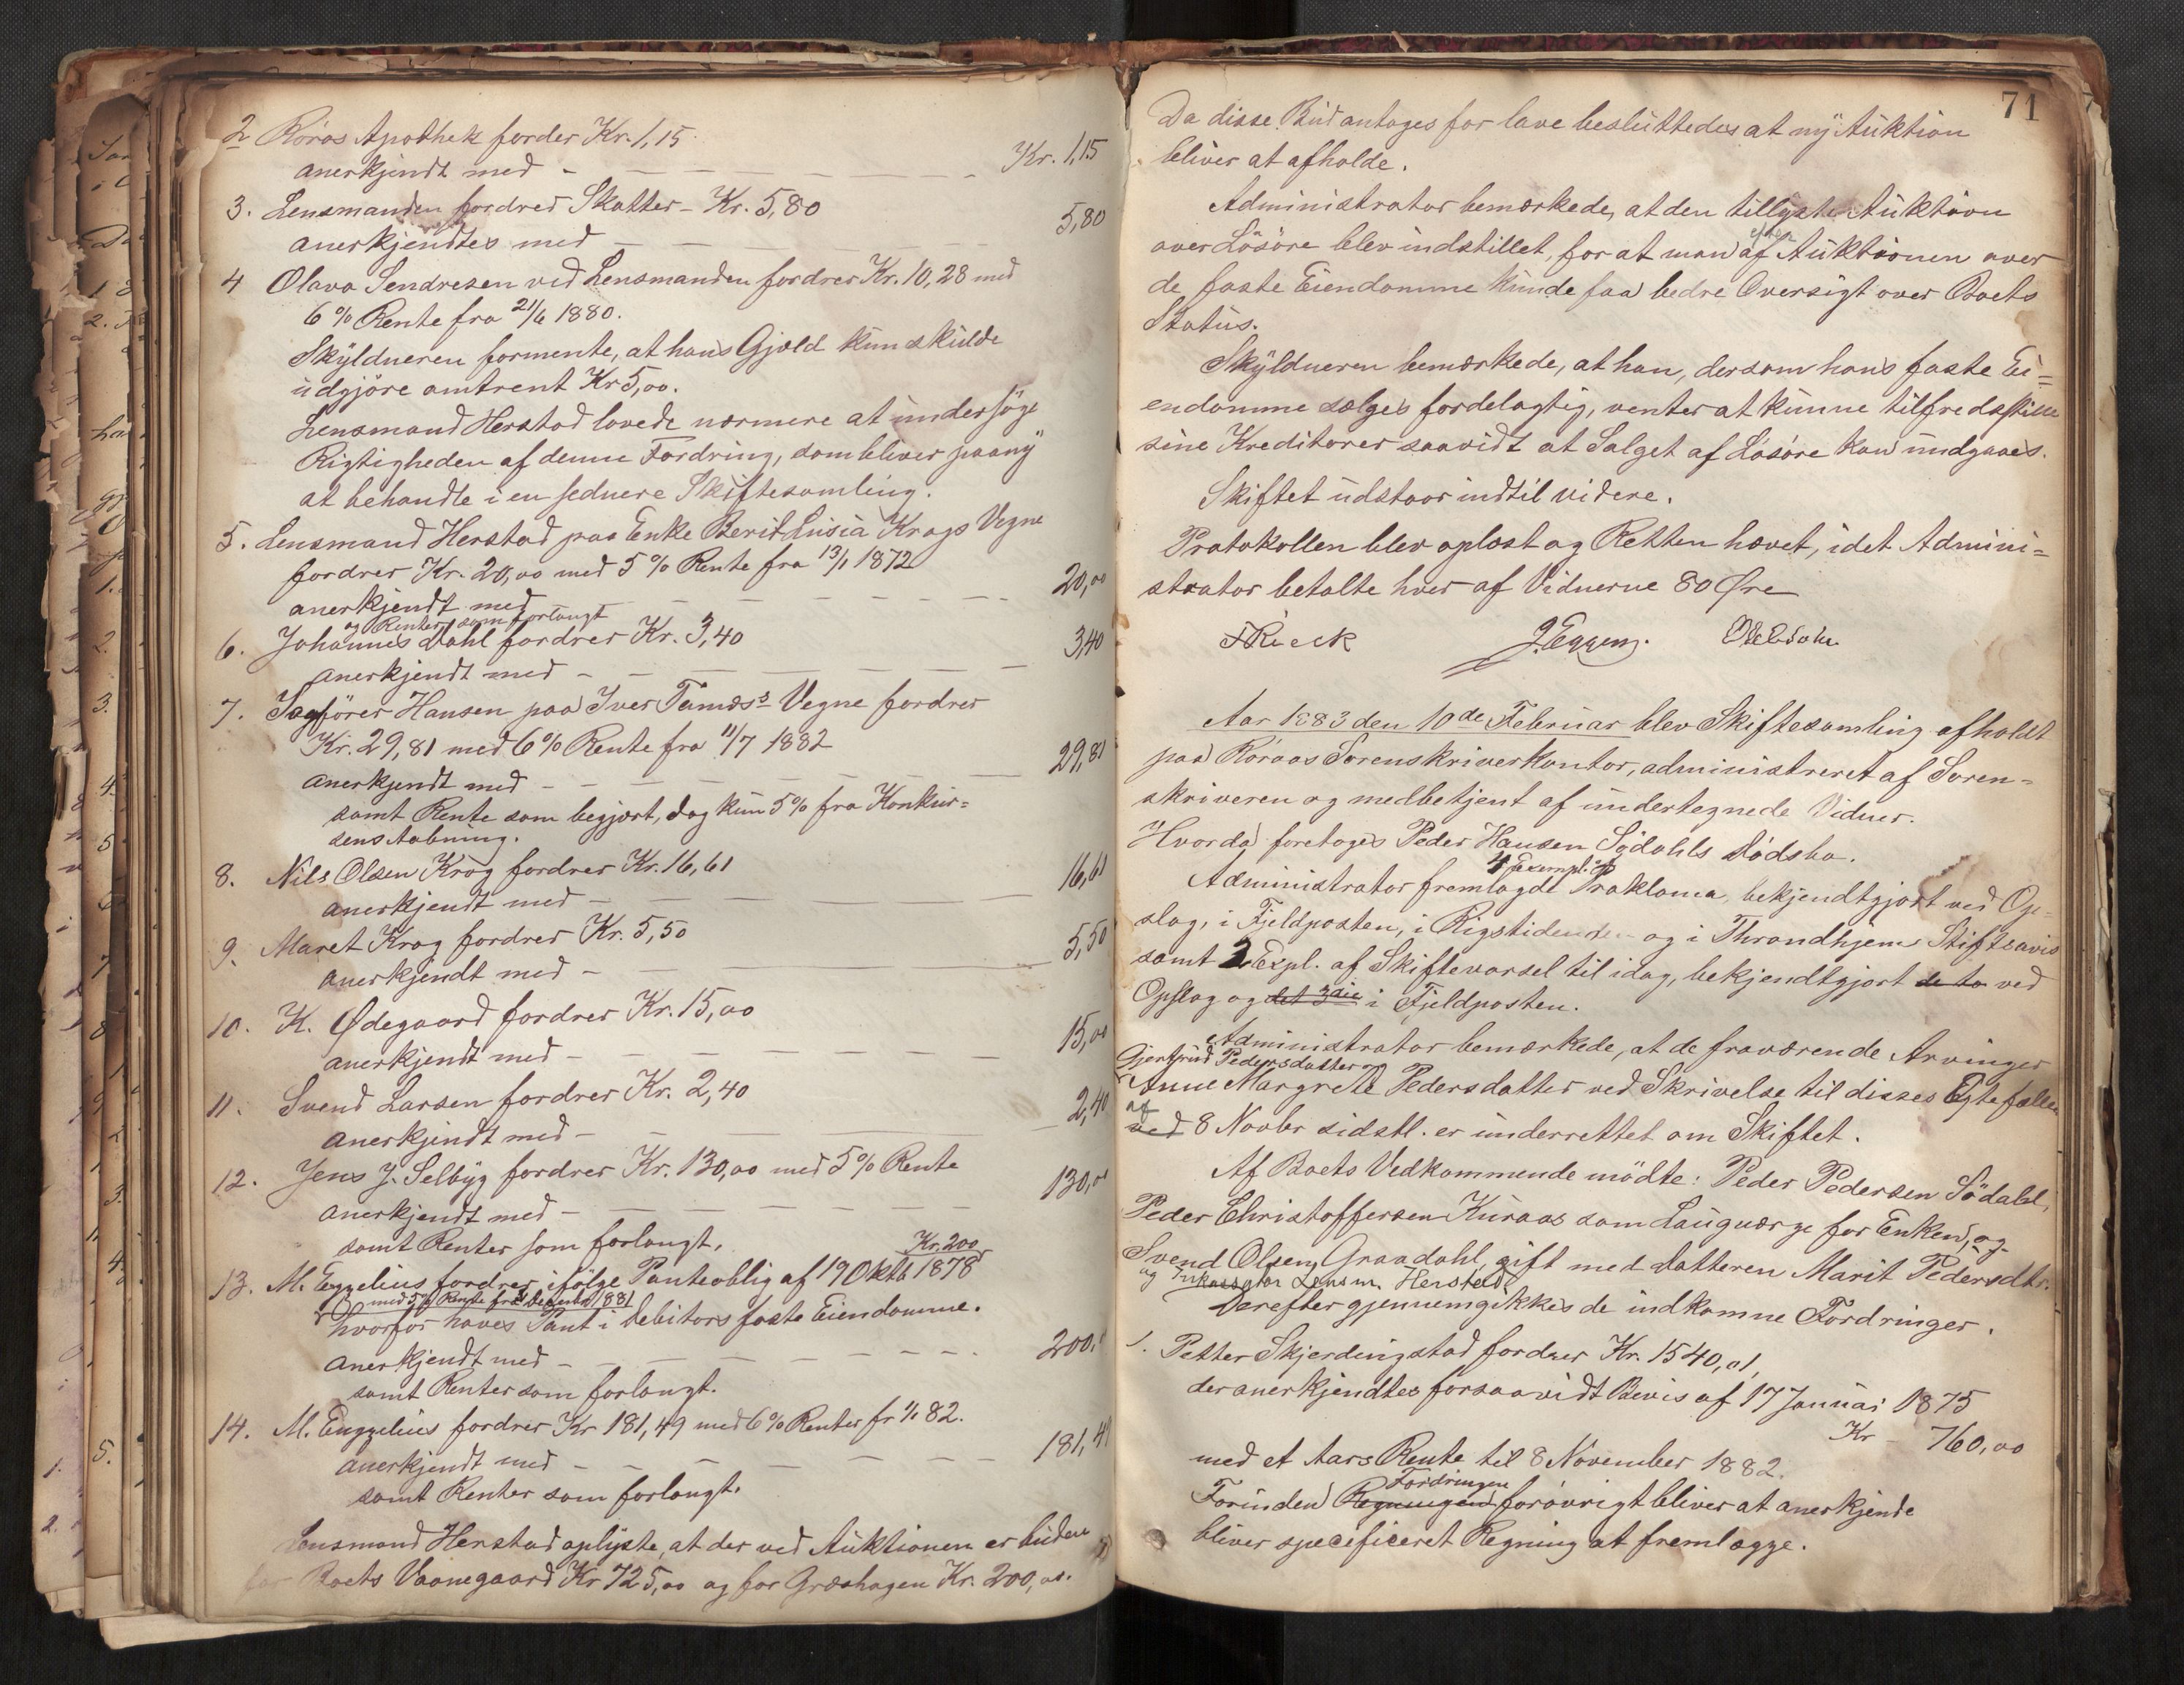 2 Röros Apothek fordrer Kr. 1,15.
anerkjendt med - Kr. 1,15
3. Lensmanden fordrer Skatter - Kr. 5,80
anerkjendtes med - 5,80
4 Olava Sendresen ved Lensmanden fordrer Kr. 10,28 med
6 % Rente fra 21/6 1880.
Skyldneren formente, at hans Gjæld kun skulde
udgjöre omtrent Kr 5,00.
Lensmand Herstad lovede nærmere at undersöge
Rigtigheden af denne Fordring, som bliver paany
at behandle i en sednere Skiftesamling.
5. Lensmand Herstad paa Enke Berit Lusia Krogs Vegne
fordrer Kr. 20,00 med 5 % Rente fra 13/1 1872
anerkjendt med - 20,00
og Renter som forlangt
6. Johannes Dahl fordrer Kr. 3,40
anerkjendt med - 3,40
7. Sagförer Hansen paa Iver Tamnæs's Vegne fordrer
Kr. 29,81 med 6 % Rente fra 11/7 1882
anerkjendt med - 29,81
samt Rente som begjært, dog kun 5 % fra Konkur=
sens Aabning.
8. Nils Olsen Krog fordrer Kr. 16,61
anerkjendt med - 16,61
9. Maret Krog fordrer Kr. 5,50
anerkjendt med - 5,50
10. K. Ødegaard fordrer Kr. 15,00
anerkjendt med - 15,00
11. Svend Larsen fordrer Kr. 2,40
anerkjendt med - 2,40
12. Jens J. Selbyg fordrer Kr. 130,00 med 5 % Rente
anerkjendt med - 130,00
samt Renter som forlangt.
Kr. 200
13. M. Engzelius fordrer ifölge Panteoblig af 19 Oktb 1878
med 5 % Rente fra December 1881
hvorfor haves Pant i Debitors faste Eiendomme.
anerkjendt med - 200,
samt Renter som forlangt.
14. M. Engzelius fordrer Kr 181,49 med 6 % Renter fr 1/1 82.
anerkjendt med - 181,49
samt Renter som forlangt.
Lensmand Herstad oplyste, at der ved Auktionen er buden
for Boets Vaanegaard Kr 725,00 og for Græshagen Kr. 200,00.
71
Da disse Bud antages for lave besluttedes at ny Auktion
bliver at afholde.
Administrator bemærkede, at den tillyste Auktion
over Lösöre blev indstillet, for at man efter af Auktionen over
de faste Eiendomme kunde faa bedre Oversigt over Boets
Status.
Skyldneren bemærkede, at han, dersom hans faste Ei=
endomme sælges fordelagtig, venter at kunne tilfredsstille
sine Kreditorer saavidt at Salget af Lösöre kan undgaaes.
Skiftet udstaar indtil videre.
Protokollen blev oplæst og Retten hævet, idet Admini=
strator betalte hver af Vidnerne 80 Øre
F Rieck J. Eggen.
Aar 1883 den 10de Februar blev Skiftesamling afholdt
paa Röraas Sorenskriverkontor, administreret af Soren=
skriveren og medbetjent af undertegnede Vidner.
Hvorda foretoges Peder Hansen Södahls Dödsbo.
4 Exempl. af
Administrator fremlagde Proklama, bekjendtgjort ved Op=
slag, i Fjeldposten, i Rigstidenden og i Throndhjems Stiftsavis
samt 2 Expl. af Skiftevarsel til idag, bekjendtgjort de to ved
Opslag og det 3die i Fjeldposten.
Administrator bemærkede, at de fraværende Arvinger
Gjertrud Pedersdatter og
Anne Margrete Pedersdatter ved Skrivelse til disses Egtefæller
af
ved 8 Novbr sidstl. er underrettet om Skiftet.
Af Boets Vedkommende mödte: Peder Pedersen Södahl,
Peder Christoffersen Kuraas som Laugværge for Enken, og
Svend Olsen Graadahl, gift med Datteren Marit Pedersdtr.
og Inkassator Lensm. Herstad.
Derefter gjennemgikkes de indkomne Fordringer.
1. Petter Skjerdingstad fordrer Kr. 1540,01,
der anerkjendtes forsaavidt Bevis af 17 Januar 1875
Kr - 760,00
med et Aars Rente til 8 November 1882.
Fordringen
Forinden Regningen forövrigt bliver at anerkjende
bliver specificeret Regning at fremlægge.